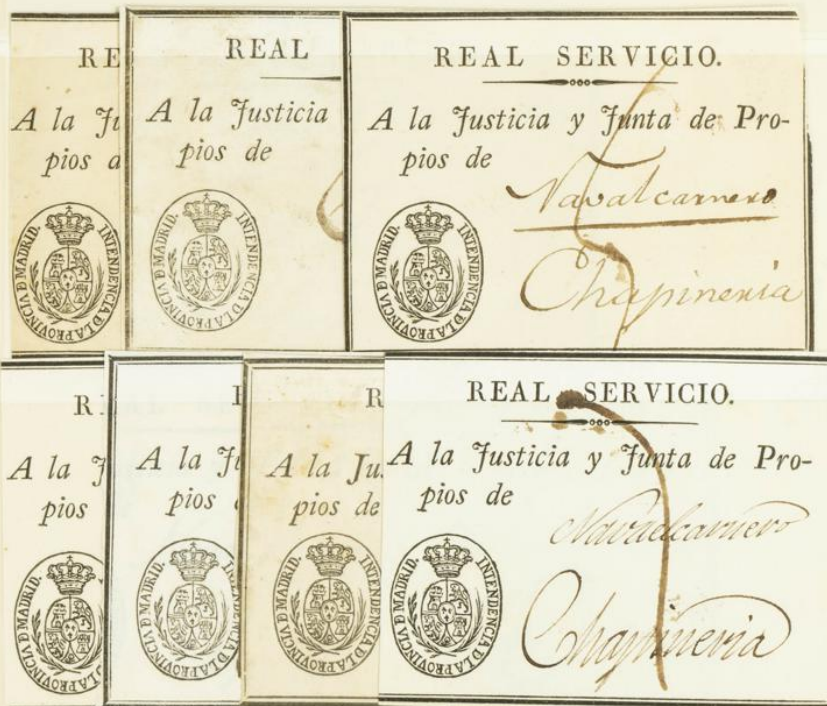 RE
A la Ju
pios d
INTENDENCIA D LA PROVINCIA D MADRID.
REAL
A la Justicia
pios de
INTENDENCIA D LA PROVINCIA D MADRID.
REAL SERVICIO.
A la Justicia y Junta de Pro-
pios de
Navalcarnero
Chapineria
INTENDENCIA D LA PROVINCIA D MADRID.
R
A la J
pios
INTENDENCIA D LA PROVINCIA D MADRID.
A la Ju
pios
INTENDENCIA D LA PROVINCIA D MADRID.
R
A la Jus
pios de
INTENDENCIA D LA PROVINCIA D MADRID.
REAL SERVICIO.
A la Justicia y Junta de Pro-
pios de
Navalcarnero
Chapineria
INTENDENCIA D LA PROVINCIA D MADRID.